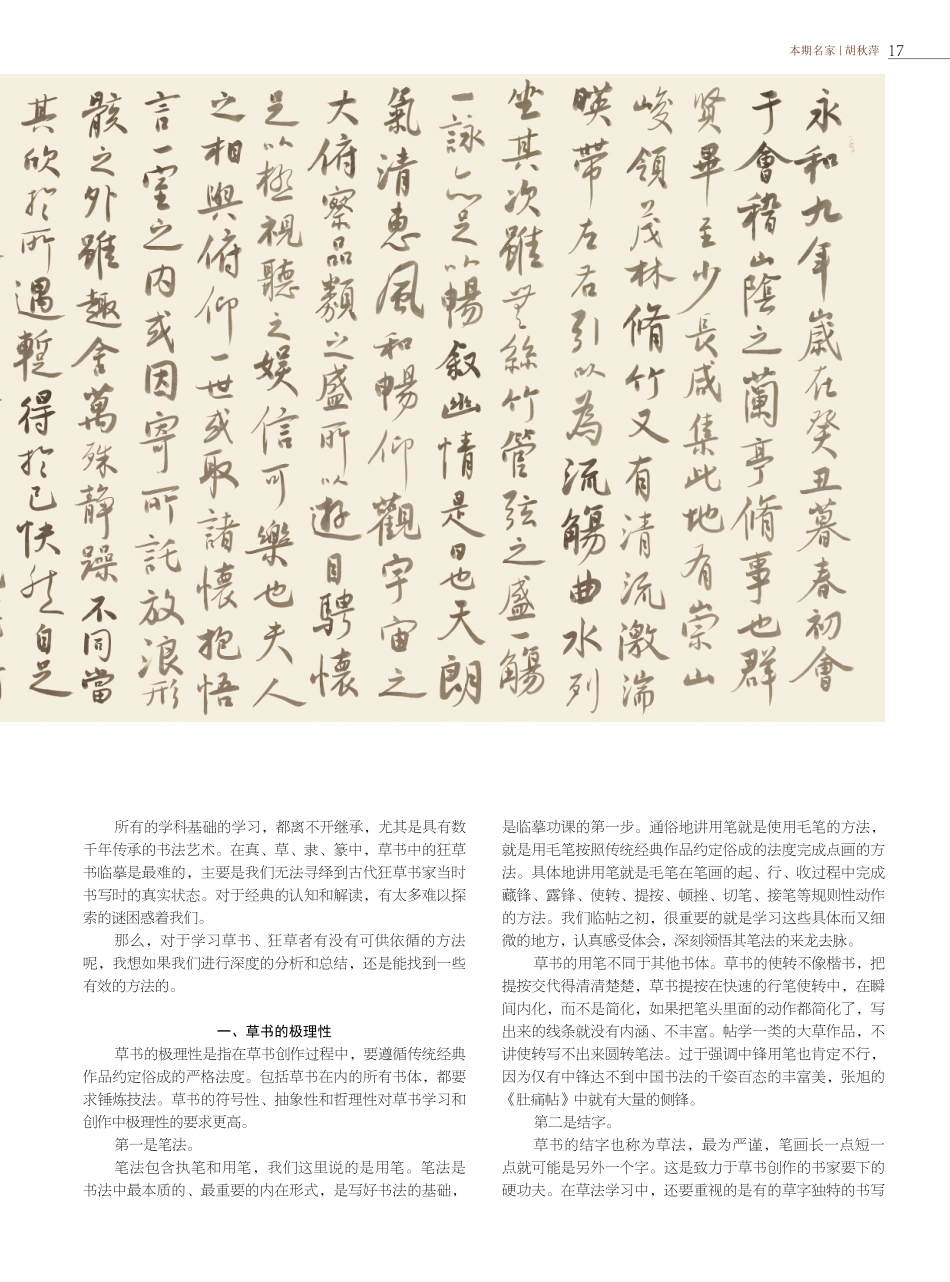 本期名家 | 胡秋萍 17
永和九年歲在癸丑暮春初會
于會稽山陰之蘭亭脩事也群
賢畢至少長咸集此地有崇山
峻領茂林脩竹又有清流激湍
暎帶左右引以為流觴曲水列
坐其次雖無絲竹管弦之盛一觴
一詠亦足以暢叙幽情是日也天朗
氣清惠風和暢仰觀宇宙之
大俯察品類之盛所以遊目騁懷
足以極視聽之娛信可樂也夫人
之相與俯仰一世或取諸懷抱悟
言一室之内或因寄所託放浪形
骸之外雖趣舍萬殊静躁不同當
其欣於所遇蹔得於己快然自足
所有的学科基础的学习，都离不开继承，尤其是具有数
千年传承的书法艺术。在真、草、隶、篆中，草书中的狂草
书临摹是最难的，主要是我们无法寻绎到古代狂草书家当时
书写时的真实状态。对于经典的认知和解读，有太多难以探
索的谜困惑着我们。
那么，对于学习草书、狂草者有没有可供依循的方法
呢，我想如果我们进行深度的分析和总结，还是能找到一些
有效的方法的。
一、草书的极理性
草书的极理性是指在草书创作过程中，要遵循传统经典
作品约定俗成的严格法度。包括草书在内的所有书体，都要
求锤炼技法。草书的符号性、抽象性和哲理性对草书学习和
创作中极理性的要求更高。
第一是笔法。
笔法包含执笔和用笔，我们这里说的是用笔。笔法是
书法中最本质的、最重要的内在形式，是写好书法的基础，
是临摹功课的第一步。通俗地讲用笔就是使用毛笔的方法，
就是用毛笔按照传统经典作品约定俗成的法度完成点画的方
法。具体地讲用笔就是毛笔在笔画的起、行、收过程中完成
藏锋、露锋、使转、提按、顿挫、切笔、接笔等规则性动作
的方法。我们临帖之初，很重要的就是学习这些具体而又细
微的地方，认真感受体会，深刻领悟其笔法的来龙去脉。
草书的用笔不同于其他书体。草书的使转不像楷书，把
提按交代得清清楚楚，草书提按在快速的行笔使转中，在瞬
间内化，而不是简化，如果把笔头里面的动作都简化了，写
出来的线条就没有内涵、不丰富。帖学一类的大草作品，不
讲使转写不出来圆转笔法。过于强调中锋用笔也肯定不行，
因为仅有中锋达不到中国书法的千姿百态的丰富美，张旭的
《肚痛帖》中就有大量的侧锋。
第二是结字。
草书的结字也称为草法，最为严谨，笔画长一点短一
点就可能是另外一个字。这是致力于草书创作的书家要下的
硬功夫。在草法学习中，还要重视的是有的草字独特的书写